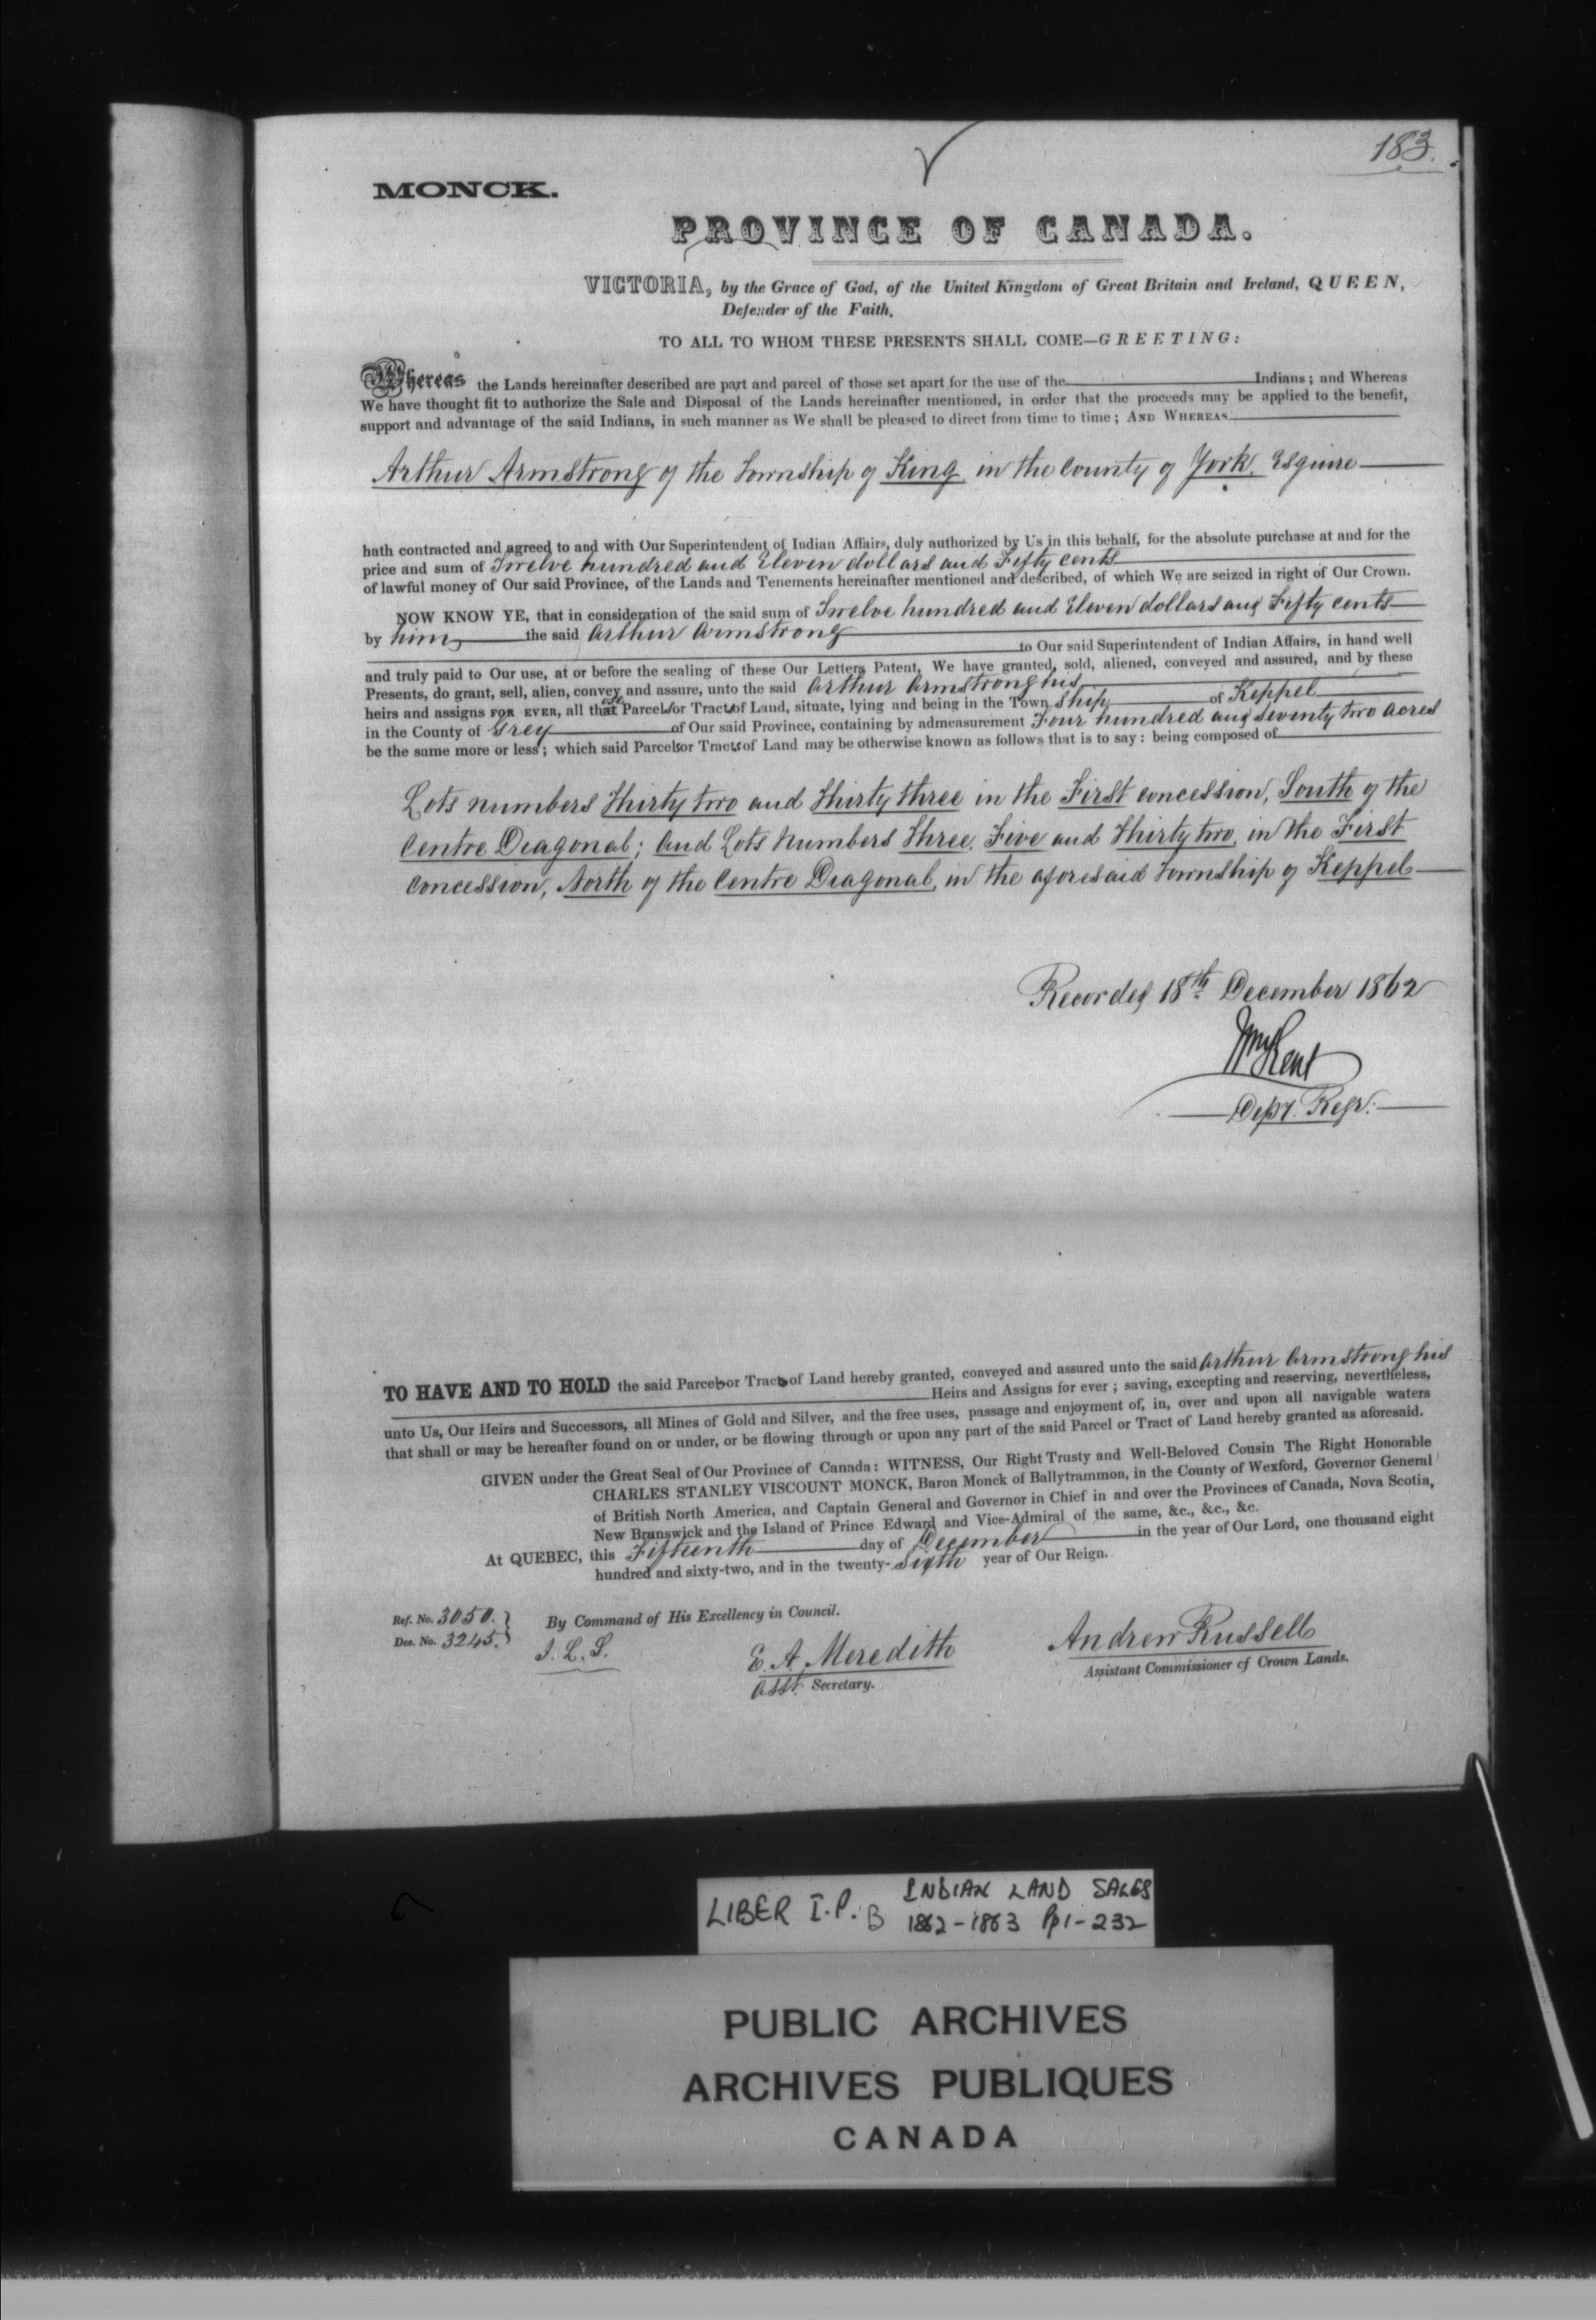 183.
MONCK.
PROVINCE OF CANADA.
VICTORIA, by the Grace of God, of the United Kingdom of Great Britain and Ireland, QUEEN,
Defender of the Faith.
TO ALL TO WHOM THESE PRESENTS SHALL COME—GREETING:
Whereas the Lands hereinafter described are part and parcel of those set apart for the use of the Indians; and Whereas
We have thought fit to authorize the Sale and Disposal of the Lands hereinafter mentioned, in order that the proceeds may be applied to the benefit,
support and advantage of the said Indians, in such manner as We shall be pleased to direct from time to time; AND WHEREAS
Arthur Armstrong of the Township of King, in the County of York, Esquire
hath contracted and agreed to and with Our Superintendent of Indian Affairs, duly authorized by Us in this behalf, for the absolute purchase at and for the
price and sum of Twelve hundred and Eleven dollars and Fifty cents
of lawful money of Our said Province, of the Lands and Tenements hereinafter mentioned and described, of which We are seized in right of Our Crown.
NOW KNOW YE, that in consideration of the said sum of Twelve hundred and Eleven dollars and Fifty cents
by him, the said Arthur Armstrong
to Our said Superintendent of Indian Affairs, in hand well
and truly paid to Our use, at or before the sealing of these Our Letters Patent, We have granted, sold, aliened, conveyed and assured, and by these
Presents, do grant, sell, alien, convey and assure, unto the said Arthur Armstrong his
heirs and assigns FOR EVER, all those Parcels or Tracts of Land, situate, lying and being in the Township of Keppel
in the County of Grey of Our said Province, containing by admeasurement Four hundred and seventy two acres
be the same more or less; which said Parcels or Tracts of Land may be otherwise known as follows that is to say: being composed of
Lots numbers Thirty two and Thirty three in the First concession, South of the
Centre Diagonal; and Lots Numbers Three, Five and Thirty two, in the First
concession, North of the Centre Diagonal, in the aforesaid Township of Keppel
Recorded 18th December 1862
Wm Kent
Depy. Regr.
TO HAVE AND TO HOLD the said Parcels or Tracts of Land hereby granted, conveyed and assured unto the said Arthur Armstrong his
Heirs and Assigns for ever; saving, excepting and reserving, nevertheless,
unto Us, Our Heirs and Successors, all Mines of Gold and Silver, and the free uses, passage and enjoyment of, in, over and upon all navigable waters
that shall or may be hereafter found on or under, or be flowing through or upon any part of the said Parcel or Tract of Land hereby granted as aforesaid.
GIVEN under the Great Seal of Our Province of Canada: WITNESS, Our Right Trusty and Well-Beloved Cousin The Right Honorable
CHARLES STANLEY VISCOUNT MONCK, Baron Monck of Ballytrammon, in the County of Wexford, Governor General
of British North America, and Captain General and Governor in Chief in and over the Provinces of Canada, Nova Scotia,
New Brunswick and the Island of Prince Edward and Vice-Admiral of the same, &c., &c., &c.
At QUEBEC, this Fifteenth day of December in the year of Our Lord, one thousand eight
hundred and sixty-two, and in the twenty-Sixth year of Our Reign.
Ref. No. 3050.
Des. No. 3245.
By Command of His Excellency in Council.
I. L. S.
E. A. Meredith
Asst. Secretary.
Andrew Russell
Assistant Commissioner of Crown Lands.
LIBER I.P. B INDIAN LAND SALES
1862-1863 Pp 1-232
PUBLIC ARCHIVES
ARCHIVES PUBLIQUES
CANADA